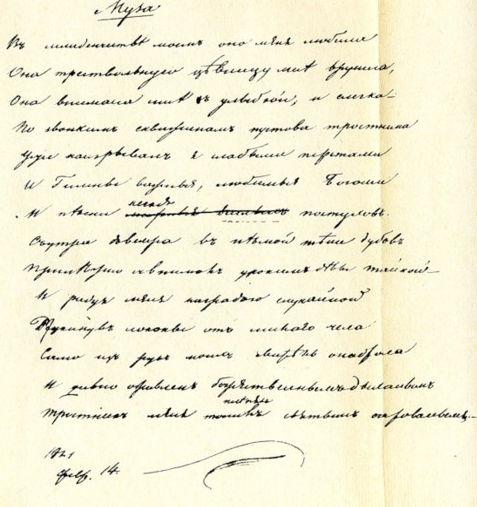 Муза
Въ младенчествѣ моемъ она меня любила
Она трествольную цѣвницу мнѣ вручила,
Она внимала мнѣ съ улыбкой, и слегка-
По звонкимъ скважинамъ пустова тростника
Уже наигрывалъ я слабыми перстами
И Гимны важныя, любимыя Богами
И пѣсни пастуховъ.
Съ утра до вечера въ нѣмой тѣни дубовъ
Прилѣжно я внималъ урокамъ дѣвы тайной
И радуя меня наградою случайной
Откинувъ локоны отъ милаго чела
Сама изъ рукъ моихъ свирѣль она брала
И дивно оживленъ божественнымъ дыханьемъ
Тростникъ меня святымъ очарованьемъ
1821
февр. 14.